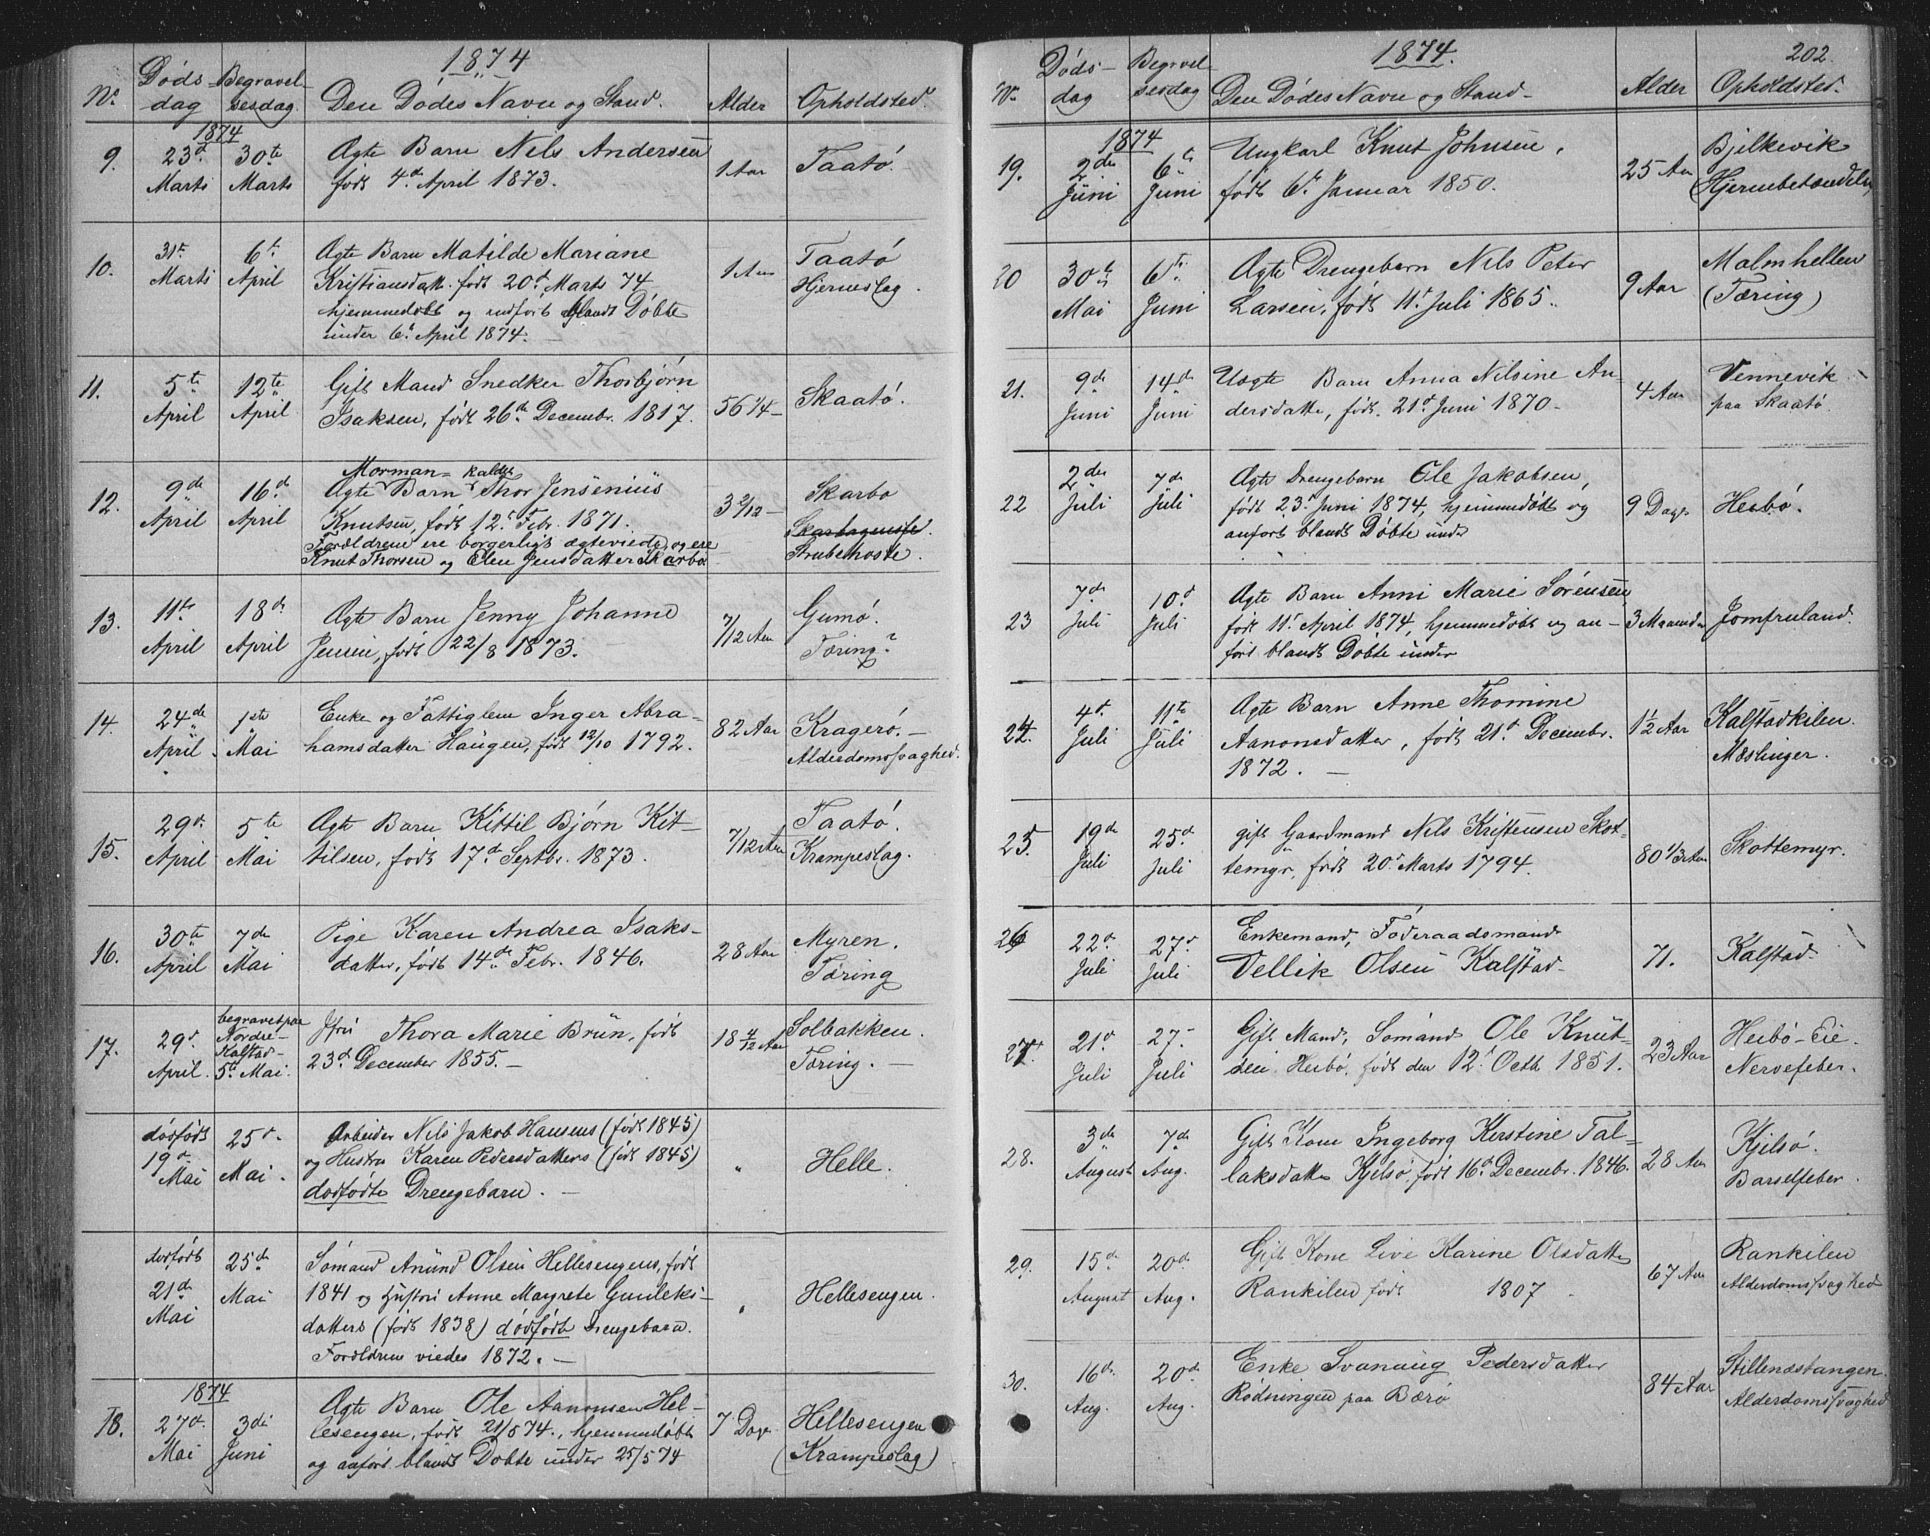 1874
Nº. Døds-dag Begravelsesdag. Den Dødes Navn og Stand. Alder Opholdsted.
1874
9. 23d Marts 30te Marts Ægte Barn Nels Andersen 1 Aar Taatø.
født 4de April 1873.
10. 31te Marts 6te April Ægte Barn Matilde Mariane 1 Aar Taatø
Kristiansdatt. født 20d Marts 74 Hjerneslag.
hjemmedøbt og indført blandt Døbte
under 6te April 1874.
11. 5te April 12te April Gift Mand Snedker Thorbjørn 56 1/4 Skaatø.
Isaksen, født 26de Decembr. 1817.
Morman= kaldet
12. 9de April 16de April Ægte Barn Thor Jensenius 3 2/12 Skarbo
Knutsen, født 12te Febr. 1871.
Forældrene ere borgerligt ægteviede, og ere Strubehoste.
Knut Thorsen og Elen Jensdatter Skarbo
13. 11te April 18de April Ægte Barn Jenny Johanne 7/12 Aar Gumø.
Jensen, født 22/8 1873. Tæring?
14. 24de April 1ste Mai Enke og Fattiglem Inger Abra- 82 Aar Kragerø.
hamsdatter Haugen, født 12/10 1792. Alderdomssvaghed.
15. 29d. April 5te Mai Ægte Barn Kittil Bjørn Kit- 7/12 Aar Taatø.
tilsen, født 17d. Septbr. 1873. Krampeslag.
16. 30te April 7de Mai Pige Karen Andrea Isaks- 28 Aar Myren.
datter, født 14de Febr. 1846. Tæring
17. 29d. April. begravet paa Nordre-Kalstad- 5te Mai. Jfru Thora Marie Brun, født 18 4/12 Aar Solbakken.
23d. December 1855. Tæring.
dødfødt 19d Mai 25d. Mai. Arbeider Nils Jakob Hansens (født 1845) " Helle.
og Hustru Karen Pedersdatters (født 1845)
dødfødte Drengebarn.
dødfødt 21de Mai 25de Mai Sømand Anund Olsen Hellesengens, født Hellesengen.
1841 og Hustru Anne Margrete Gunleks-
datters (født 1838) dødfødt Drengebarn.
Forældrene viedes 1872.
1874
18. 27d. Mai 3die Juni Ægte Barn Ole Aanonsen Hel- 7 Dage Hellesengen
lesengen, født 21/5 74, hjemmedøbt (Krampeslag)
og anført blandt Døbte under 25/5 74
1874. 202.
Nº. Døds-dag Begravelsesdag Den Dødes Navn og Stand. Alder Opholdsted.
1874
19. 2den Juni 6te Juni Ungkarl Knut Johnsen, 25 Aar Bjelkevik
født 6te Januar 1850. (Hjernebetændelse)
20 30te Mai 6te Juni Ægte Drengebarn Nils Peter 9 Aar Malmhellen
Larsen, født 11te Juli 1865. (Tæring)
21. 9de Juni 14de Juni Uægte Barn Anna Nilsine An- 4 Aar Vennevik
dersdatter, født 21d. Juni 1870. paa Skaatø
22 2den Juli 7de Juli Ægte Drengebarn Ole Jakobsen, 9 Dage Heibø.
født 23d Juni 1874, hjemmedøbt og
anført blandt Døbte under
23 7de Juli 10d. Juli Ægte Barn Anni Marie Sørensen, 3 Maaneder Jomfruland.
født 11te April 1874, hjemmedøbt og an-
ført blandt Døbte under
24. 4d. Juli 11te Juli Ægte Barn Anne Thomine 1 1/2 Aar Kalstadkilen.
Aanonsdatter, født 21d Decembr. Mæslinger.
1872.
25. 19de Juli 25d. Juli gift Gaardmand Nels Kristensen Skot- 80 1/3 Aar Skottemyr.
temyr, født 20d Marts 1794.
26 22d Juli 27d Juli Enkemand, Føderaadsmand 71. Kalstad.
Vellik Olsen Kalstad.
27. 21d Juli 27. Juli Gift Mand, Sømand Ole Knut- 23 Aar Heibø-Eie.
sen Heibø, født den 12te Octb 1851. Nervefeber.
28. 3de August 7de Aug. Gift Kone Ingeborg Kerstine Tal- 28 Aar Kjelsø.
laksdatter Kjelsø, født 16d. Decembr. 1846. Barselfeber.
29. 15d. August 20d. Aug. Gift Kone Live Karine Olsdatter 67 Aar Rankilen
Rankilen født 1807 Alderdomssvaghed
30. 16de Aug. 20d. Aug. Enke Svanaug Pedersdatter 84 Aar Stillenæstangen
Rødningen paa Bærø Alderdomssvaghed